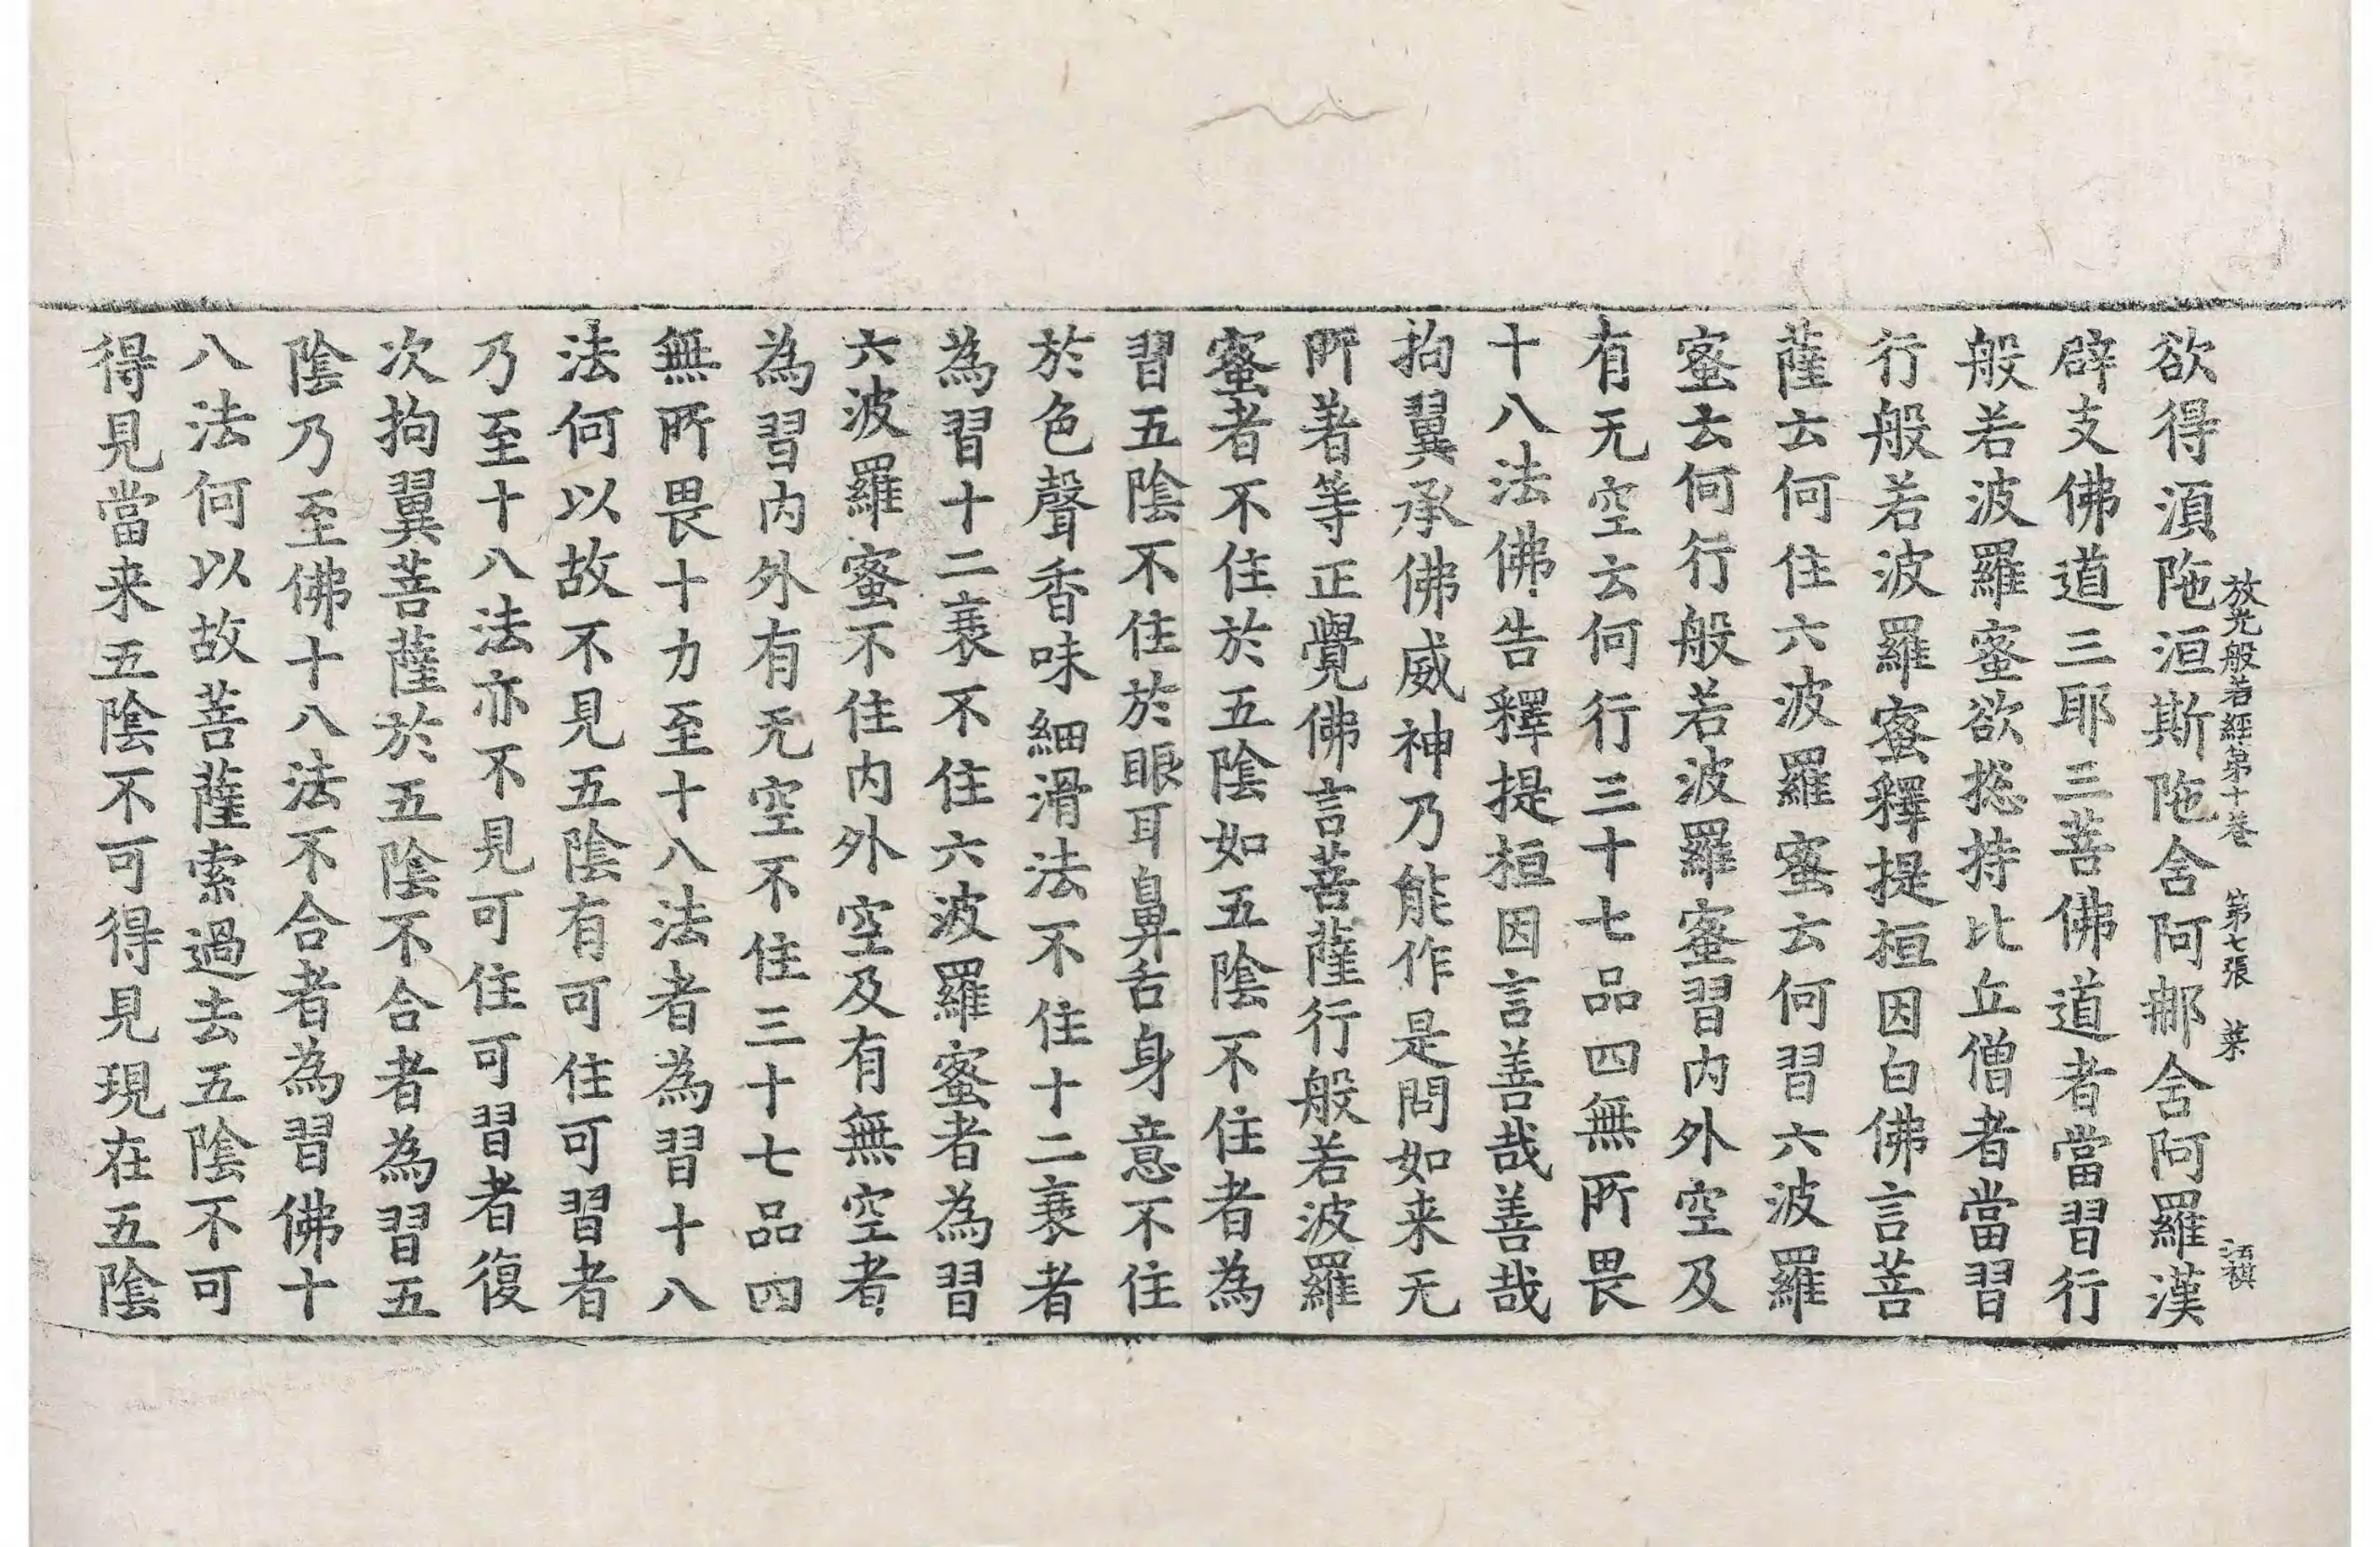 放光般若經第十卷　第七張　菜
欲得湏陁洹斯陁含阿郍含阿羅漢
辟支佛道三耶三菩佛道者當習行
般若波羅蜜欲揔持比丘僧者當習
行般若波羅蜜釋提桓因白佛言菩
薩云何住六波羅蜜云何習六波羅
蜜云何行般若波羅蜜習内外空及
有无空云何行三十七品四無所畏
十八法佛告釋提桓因言善哉善哉
拘翼承佛威神乃能作是問如来无
所著等正覺佛言菩薩行般若波羅
蜜者不住於五陰如五陰不住者為
習五陰不住於眼耳鼻舌身意不住
於色聲香味細滑法不住十二衰者
為習十二衰不住六波羅蜜者為習
六波羅蜜不住内外空及有無空者
為習内外有无空不住三十七品四
無所畏十力至十八法者為習十八
法何以故不見五陰有可住可習者
乃至十八法亦不見可住可習者復
次拘翼菩薩於五陰不合者為習五
陰乃至佛十八法不合者為習佛十
八法何以故菩薩索過去五陰不可
得見當来五陰不可得見現在五陰